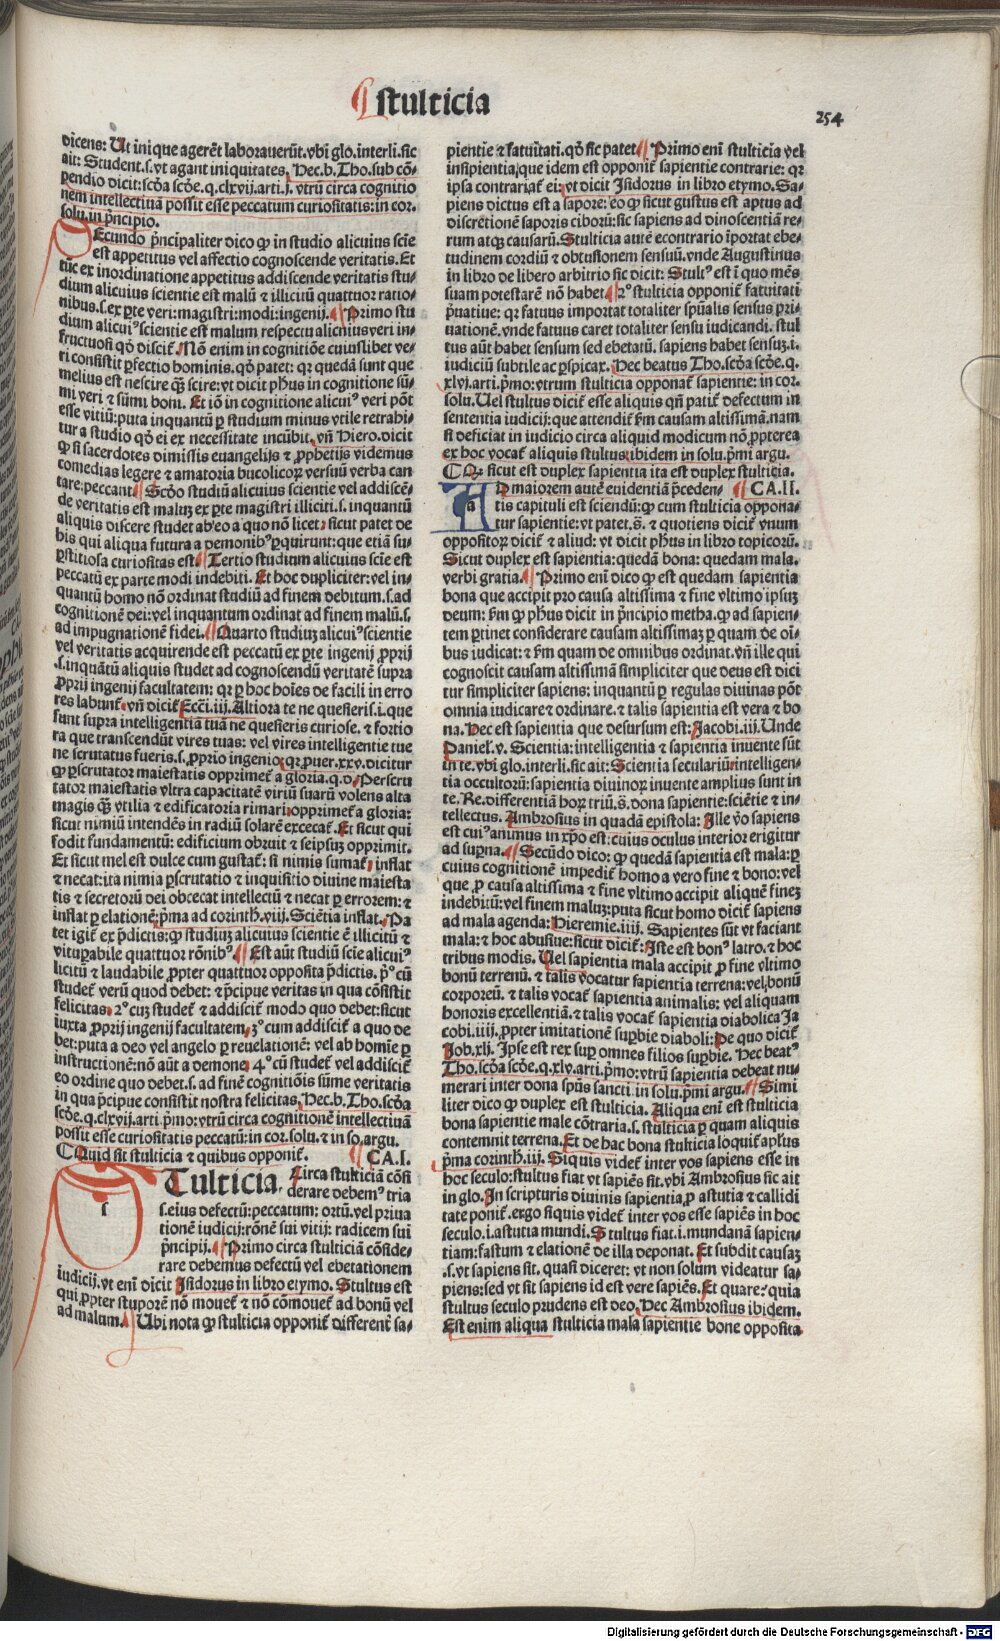 ¶ stulticia
254
dicens: Ut inique agerẽt laborauerũt. vbi glo. interli. sic
ait: Student. s. vt agant iniquitates. Hec. b. Tho. sub cõ-
pendio dicit: scďa scďe. q. clxvij. arti. j. vtrũ circa cognitio
nem intellectiuã possit esse peccatum curiositatis: in cor.
solu. in p̃ncipio.
SEcundo p̃ncipaliter dico ꝙ in studio alicuius scie
est appetitus vel affectio cognoscende veritatis. Et
tũc ex inordinatione appetitus addiscende veritatis stu-
dium alicuius scientie est malũ ⁊ illicitũ quattuor ratio-
nibus. s. ex ꝑte veri: magistri: modi: ingenij. ¶ Primo stu
dium alicuiꝰ scientie est malum respectu alicuius veri in-
fructuosi qď discit̃. Nõ enim in cognitiõe cuiuslibet ve-
ri consistit ꝑfectio hominis. qď patet: qꝛ quedã sunt que
melius est nescire qꝫ̃ scire: vt dicit ph̃us in cognitione sũ-
mi veri ⁊ sũmi boni. Et iõ in cognitione alicuiꝰ veri põt
esse vitiũ: puta inquantũ ꝑ studium minus vtile retrahi-
tur a studio qď ei ex necessitate incũbit. vñ Hiero. dicit
ꝙ si sacerdotes dimissis euangelijs ⁊ ꝓphetijs videmus
comedias legere ⁊ amatoria bucolicoꝝ versuũ verba can
tare: peccant ¶ Scďo studiũ alicuius scientie vel addiscẽ-
de veritatis est maluꝫ ex ꝑte magistri illiciti. s. inquantũ
aliquis discere studet ab eo a quo nõ licet: sicut patet de
his qui aliqua futura a demonibꝰ ꝑquirunt: que etiã su-
ꝑstitiosa curiositas est ¶ Tertio studium alicuius scie est
peccatũ ex parte modi indebiti. Et hoc dupliciter: vel in-
quantũ homo nõ ordinat studiũ ad finem debitum. s. ad
cognitionẽ dei: vel inquantum ordinat ad finem malũ. s.
ad impugnationẽ fidei. ¶ Quarto studiuꝫ alicuiꝰ scientie
vel veritatis acquirende est peccatũ ex ꝑte ingenij ꝓprij
.s. inquãtũ aliquis studet ad cognoscendũ veritatẽ supra
ꝓprij ingenij facultatem: qꝛ ꝑ hoc hoies de facili in erro
res labunt̃. vñ dicit̃ Ecci. iij. Altiora te ne quesieris. i. que
sunt supra intelligentia tuã ne quesieris curiose. ⁊ fortio
ra que transcendũt vires tuas: vel vires intelligentie tue
ne scrutatus fueris. s. ꝓprio ingenio: qꝛ prouer. xxv. dicitur
ꝙ ꝑscrutator maiestatis opprimet̃ a gloria. q. d. Perscru
tator maiestatis vltra capacitatẽ viriũ suarũ volens alta
magis qꝫ̃ vtilia ⁊ edificatoria rimari: opprimet̃ a gloria:
sicut nimiũ intendẽs in radiũ solarẽ excecat̃. Et sicut qui
fodit fundamentũ: edificium obruit ⁊ seipsuꝫ opprimit.
Et sicut mel est dulce cum gustat̃: si nimis sumat̃, inflat
⁊ necat: ita nimia ꝑscrutatio ⁊ inquisitio diuine maiesta
tis ⁊ secretorũ dei obcecat intellectũ ⁊ necat ꝑ errorem: ⁊
inflat ꝑ elationẽ: p̃ma ad corinth. viij. Sciẽtia inflat. Pa
tet igit̃ ex p̃dictis: ꝙ studiuꝫ alicuius scientie ẽ illicitũ ⁊
vituꝑabile quattuor rõnibꝰ. ¶ Est aũt studiũ scie alicuiꝰ
licitũ ⁊ laudabile ꝓpter quattuor opposita p̃dictis. pꝰ cũ
studet̃ verũ quod debet: ⁊ p̃cipue veritas in qua cõsistit
felicitas. 2ꝰ cuꝫ studet̃ ⁊ addiscit̃ modo quo debet: sicut
iuxta ꝓprij ingenij facultatem, 3ꝰ cum addiscit̃ a quo de
bet: puta a deo vel angelo ꝑ reuelationẽ: vel ab homie ꝑ
instructionẽ: nõ aũt a demone, 4ꝰ cũ studet̃ vel addiscit̃
eo ordine quo debet. s. ad finẽ cognitiõis sũme veritatis
in qua p̃cipue consistit nostra felicitas. Hec. b. Tho. scďa
scďe. q. clxvij. arti. p̃mo: vtrũ circa cognitionẽ intellectiuã
possit esse curiositatis peccatũ: in cor. solu. ⁊ in so. argu.
¶ Quid sit stulticia ⁊ quibus opponit̃. ¶ CA. I.
s
STulticia. Circa stulticiã cõsi
derare debemꝰ tria
s. eius defectũ: peccatum: ortũ. vel priua
tionẽ iudicij: rõnẽ sui vitij: radicem sui
p̃ncipij. ¶ Primo circa stulticiã cõside-
rare debemus defectũ vel ebetationem
iudicij. vt eni dicit Isidorus in libro etymo. Stultus est
qui ꝓpter stuporẽ nõ mouet̃ ⁊ nõ cõmouet̃ ad bonũ vel
ad malum. ¶ Ubi nota ꝙ stulticia opponit̃ different̃ sa-
pientie ⁊ fatuitati. qď sic patet ¶ Primo eni stulticia vel
insipientia: que idem est opponit̃ sapientie contrarie: qꝛ
ipsa contrariat̃ ei: vt dicit Isidorus in libro etymo. Sa-
piens dictus est a sapore: eo ꝙ sicut gustus est aptus ad
discretionẽ saporis ciborũ: sic sapiens ad dinoscentiã re-
rum atqꝫ causarũ. Stulticia autẽ econtrario iportat ebe-
tudinem cordiũ ⁊ obtusionem sensuũ. vnde Augustinus
in libro de libero arbitrio sic dicit: Stulꝰ est i quo mẽs
suam potestatẽ nõ habet ¶ 2ꝰ stulticia opponit̃ fatuitati
p̃uatiue: qꝛ fatuus importat totaliter spũalis sensus pri-
uationẽ. vnde fatuus caret totaliter sensu iudicandi. stul
tus aũt habet sensum sed ebetatũ. sapiens habet sensuꝫ. i.
iudiciũ subtile ac ꝑspicax. Hec beatus Tho. scďa scďe. q.
xlvj. arti. p̃mo: vtrum stulticia opponat̃ sapientie: in cor.
solu. Uel stultus dicit̃ esse aliquis qñ patit̃ defectum in
sententia iudicij: que attendit̃ ẜm causam altissimã. nam
si deficiat in iudicio circa aliquid modicum nõ ꝓpterea
ex hoc vocat̃ aliquis stultus: ibidem in solu. p̃mi argu.
¶ Qꝫ sicut est duplex sapientia ita est duplex stulticia.
a
AD maiorem autẽ euidentiã p̃ceden- ¶ CA. II.
tis capituli est sciendũ: ꝙ cum stulticia oppona-
tur sapientie: vt patet. s̃. ⁊ quotiens dicit̃ vnum
oppositoꝝ dicit̃ ⁊ aliud: vt dicit ph̃us in libro topicorũ.
Sicut duplex est sapientia: quedã bona: quedam mala.
verbi gratia. ¶ Primo eni dico ꝙ est quedam sapientia
bona que accipit pro causa altissima ⁊ fine vltimo ipsuꝫ
deum: ẜm ꝙ ph̃us dicit in p̃ncipio metha. ꝙ ad sapien-
tem ꝑtinet considerare causam altissimaꝫ ꝑ quam de oi-
bus iudicat: ⁊ ẜm quam de omnibus ordinat. vñ ille qui
cognoscit causam altissimã simpliciter que deus est dici
tur simpliciter sapiens: inquantũ ꝑ regulas diuinas põt
omnia iudicare ⁊ ordinare. ⁊ talis sapientia est vera ⁊ bo
na. Hec est sapientia que desursum est: Jacobi. iij. Unde
Daniel. v. Scientia: intelligentia ⁊ sapientia inuente sũt
in te. vbi glo. interli. sic ait: Scientia seculariũ: intelligen-
tia occultorũ: sapientia diuinoꝝ inuente amplius sunt in
te. Re. differentiã hoꝝ triũ. s̃. dona sapientie: sciẽtie ⁊ in-
tellectus. Ambrosius in quadã epistola: Ille ṽo sapiens
est cuiꝰ animus in xp̃o est: cuius oculus interior erigitur
ad suꝑna. ¶ Secũdo dico: ꝙ quedã sapientia est mala: ꝑ
cuius cognitionẽ impedit̃ homo a vero fine ⁊ bono: vel
que ꝓ causa altissima ⁊ fine vltimo accipit aliquẽ fineꝫ
indebitũ: vel finem maluꝫ: puta sicut homo dicit̃ sapiens
ad mala agenda: Hieremie. iiij. Sapientes sũt vt faciant
mala: ⁊ hoc abusiue: sicut dicit̃: Iste est bonꝰ latro. ⁊ hoc
tribus modis. Uel sapientia mala accipit ꝓ fine vltimo
bonũ terrenũ. ⁊ talis vocatur sapientia terrena: vel, bonũ
corporeũ. ⁊ talis vocat̃ sapientia animalis: vel aliquam
bonoris excellentiã. ⁊ talis vocat̃ sapientia diabolica Ja
cobi. iiij. ꝓpter imitationẽ suꝑbie diaboli: De quo dicit̃
Job. xlj. Ipse est rex suꝑ omnes filios suꝑbie. Hec beatꝰ
Tho. scďa scďe. q. xlv. arti. p̃mo: vtrũ sapientia debeat nu-
merari inter dona spũs sancti. in solu. p̃mi argu. ¶ Simi
liter dico ꝙ duplex est stulticia. Aliqua eni est stulticia
bona sapientie male cõtraria. s. stulticia ꝑ quam aliquis
contemnit terrena. Et de hac bona stulticia loquit̃ apl̃us
p̃ma corinth. iij. Si quis videt̃ inter vos sapiens esse in
hoc seculo: stultus fiat vt sapiẽs sit. vbi Ambrosius sic ait
in glo. In scripturis diuinis sapientia, ꝓ astutia ⁊ callidi
tate ponit̃. ergo si quis videt̃ inter vos esse sapiẽs in hoc
seculo. i. astutia mundi. Stultus fiat. i. mundanã sapien-
tiam: fastum ⁊ elationẽ de illa deponat. Et subdit causaꝫ
.s. vt sapiens sit. quasi diceret: vt non solum videatur sa-
piens: sed vt sit sapiens id est vere sapiẽs. Et quare? quia
stultus seculo prudens est deo. Hec Ambrosius ibidem.
Est enim aliqua stulticia mala sapientie bone opposita
Digitalisierung gefördert durch die Deutsche Forschungsgemeinschaft - DFG